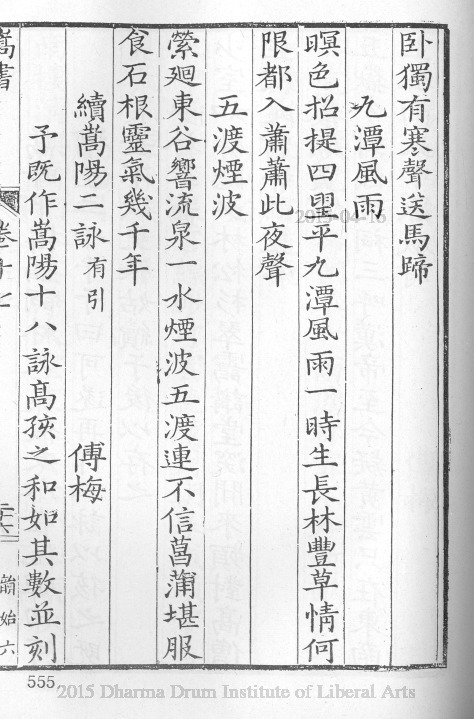 卧獨有寒聲送馬蹄
九潭風雨
暝色招提四望平九潭風雨一時生長林豐草情何
限都入蕭蕭此夜聲
五渡煙波
縈廻東谷響流泉一水煙波五渡連不信菖蒲堪服
食石根靈氣幾千年
續嵩陽二詠有引 傅梅
予既作嵩陽十八詠高孩之和如其數並刻
嵩書
卷十
555
2015-04-16
2015 Dharma Drum Institute of Liberal Arts